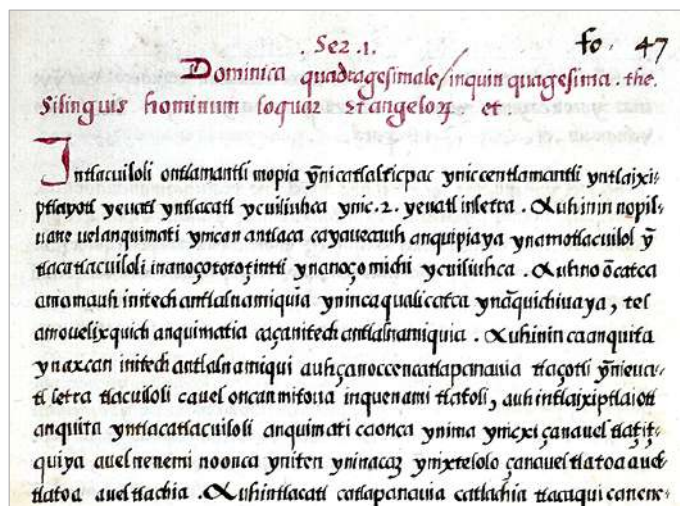 . Ser .1. fo . 47
Dominica quadragesimale/inquin quagesima . the.
Silinguis hominum loquar et angeloꝝ et
Intlacuiloli ontlamantli mopia ȳnicatlalticpac yniccentlamantli yntlaixi-
ptlayotl yeuatl yntlacatl ycuiliuhca ynic .2. yeuatl inletra . Auh inin nopil-
uane uelanquimati ymcan antlaca cayauecauh anquipiaya ynamotlacuilol ȳ
tlacatlacuiloli inanoçotototintli ynanoço michi ycuiliuhca . Auhno ōcatca
amomauh initech antlalnamiquia ynincaqualicatca ynāquichiuaya, tel
amouelixquich anquimatia caçanitech antlalnamiquia . Auhinin caanquita
ynaxcan initech antlalnamiqui auhçanoccencatlapanauia tlaçotli ȳnieua-
tl letra tlacuiloli cauel oncan mitoua inquenami tlatoli, auh intlaixiptlaiotl
anquita yntlacatlacuiloli anquimati caonca ynima ynicxi çanauel tlatzitz-
quiya auel nenemi noonca yniten yninacaz ynixtelolo çanauel tlatoa auel
tlatoa auel tlachia . Auhintlacatl catlapanauia catlachia tlacaqui canene-